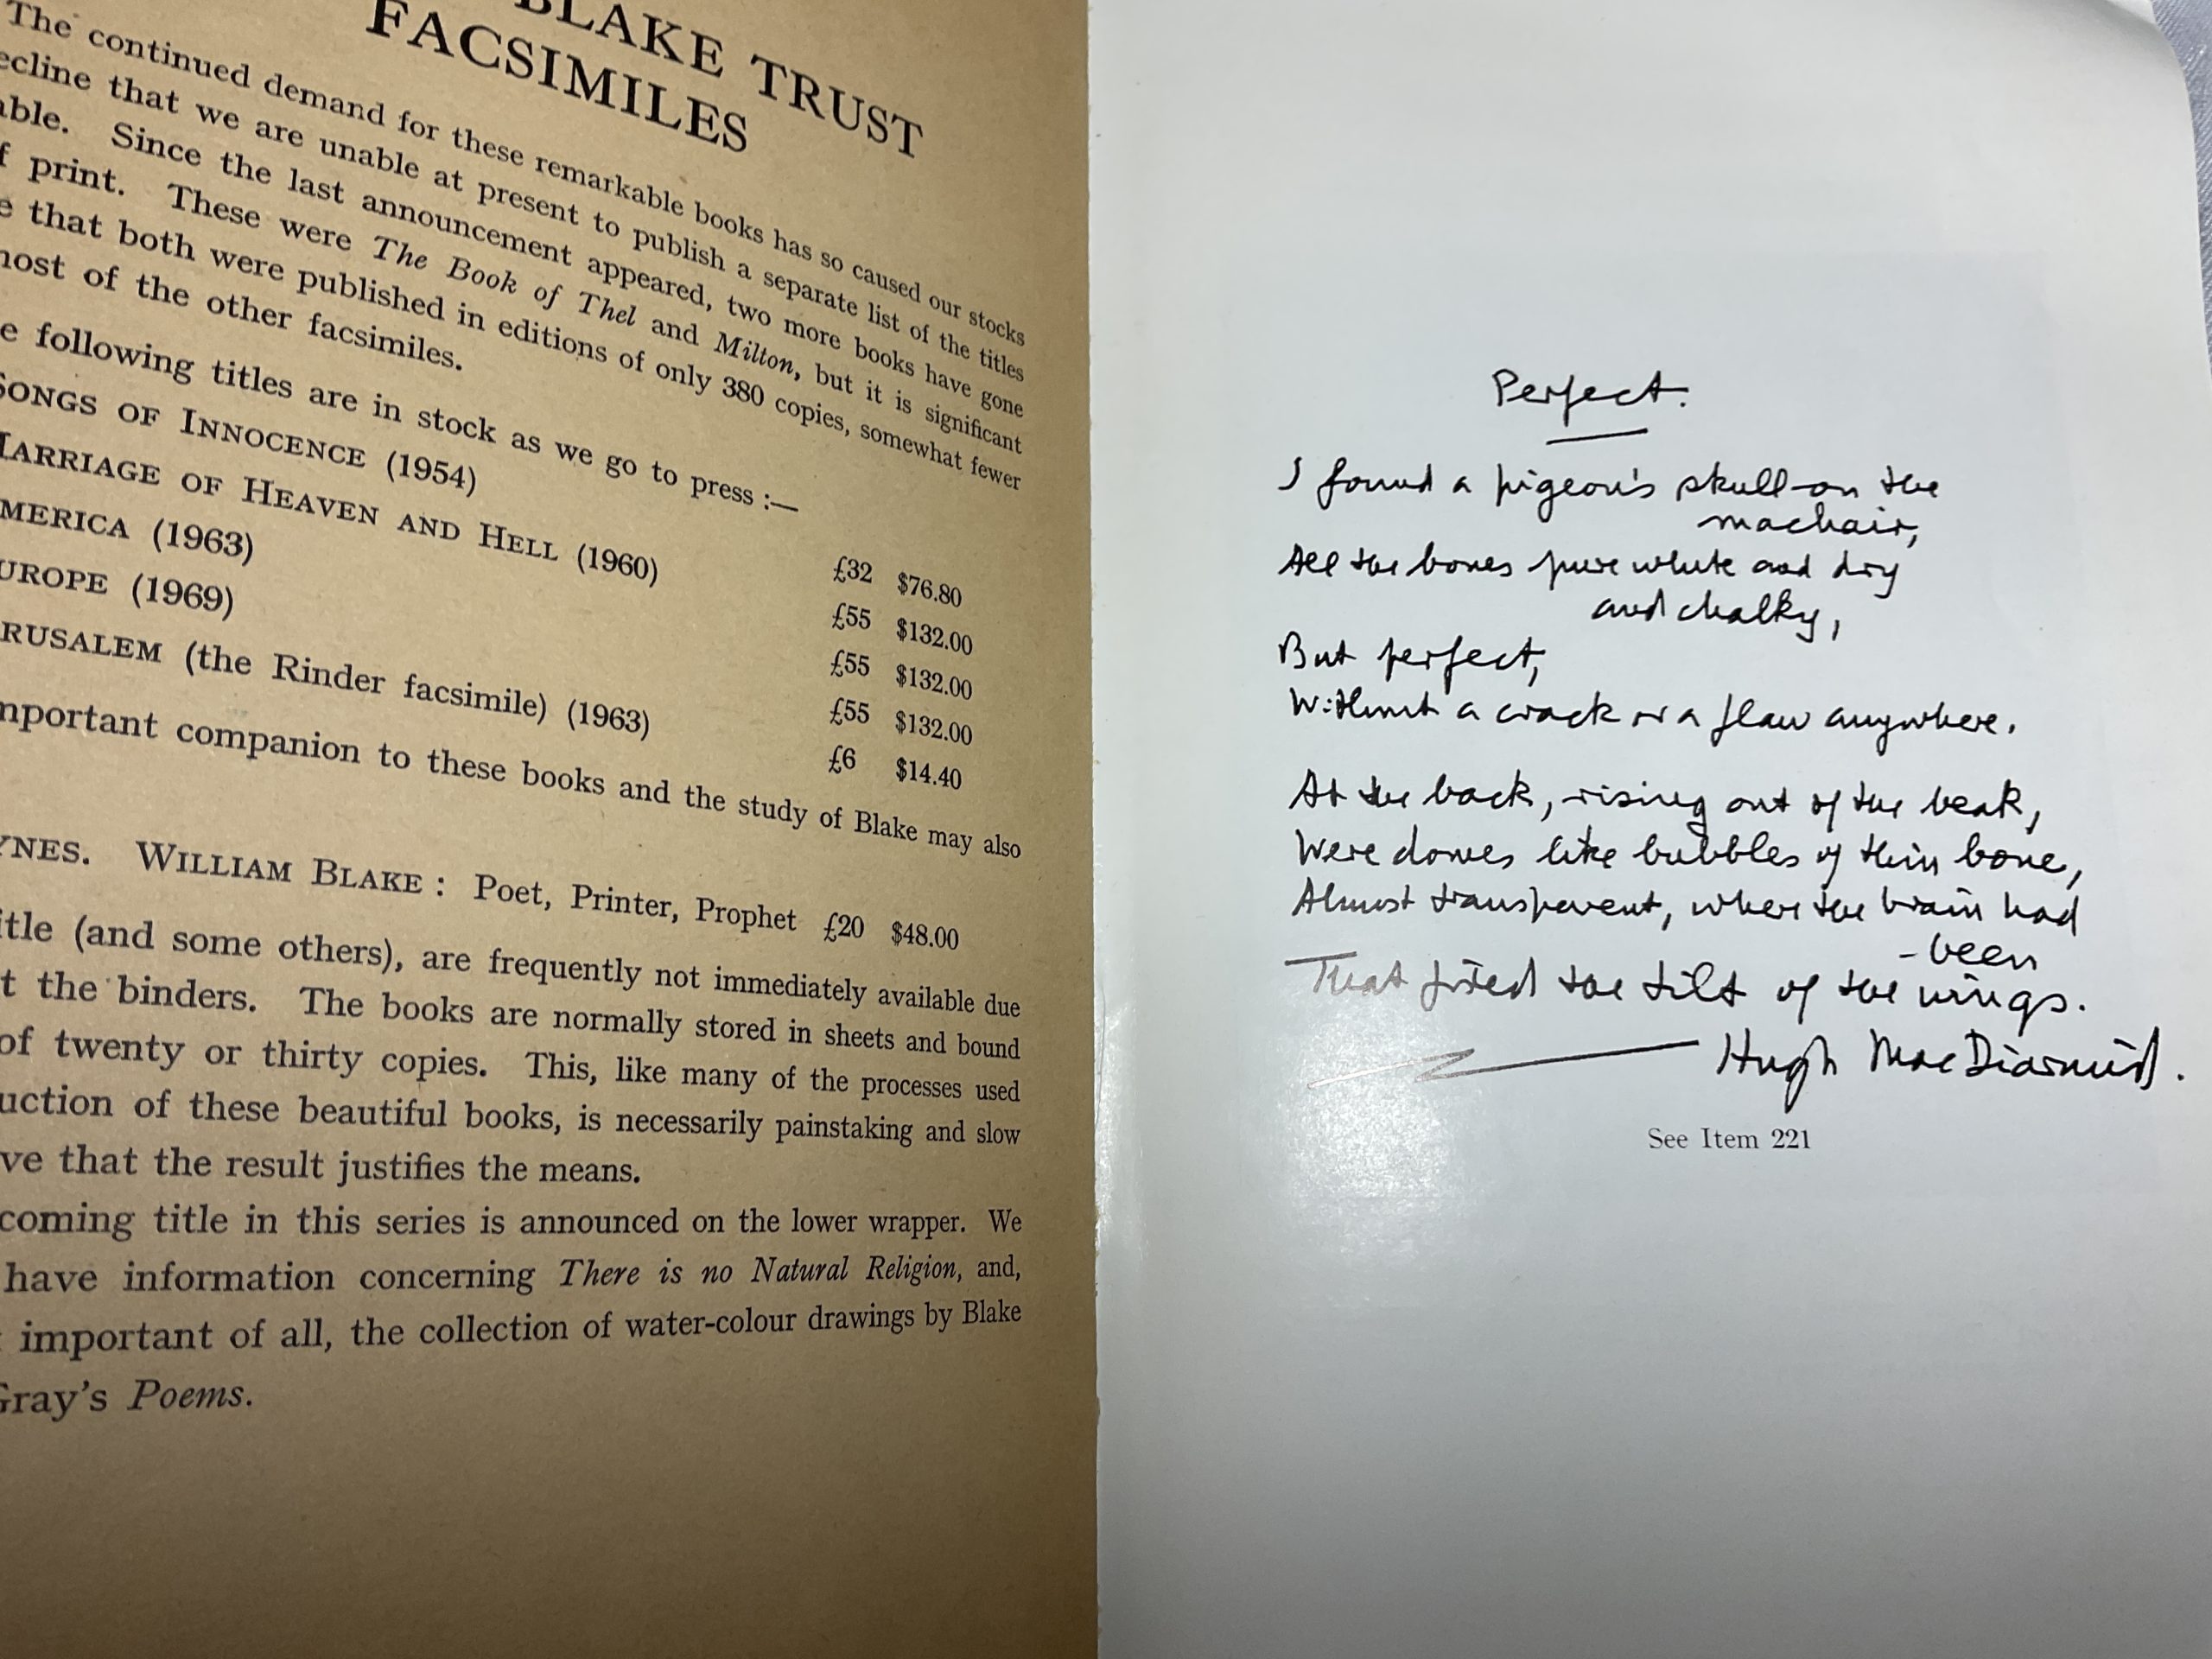 BLAKE TRUST
FACSIMILES
The continued demand for these remarkable books has so caused our stocks
ecline that we are unable at present to publish a separate list of the titles
able. Since the last announcement appeared, two more books have gone
f print. These were The Book of Thel and Milton, but it is significant
e that both were published in editions of only 380 copies, somewhat fewer
most of the other facsimiles.
e following titles are in stock as we go to press :—
SONGS OF INNOCENCE (1954) £32 $76.80
MARRIAGE OF HEAVEN AND HELL (1960) £55 $132.00
MERICA (1963) £55 $132.00
UROPE (1969) £55 $132.00
RUSALEM (the Rinder facsimile) (1963) £6 $14.40
mportant companion to these books and the study of Blake may also
YNES. WILLIAM BLAKE : Poet, Printer, Prophet £20 $48.00
itle (and some others), are frequently not immediately available due
t the binders. The books are normally stored in sheets and bound
of twenty or thirty copies. This, like many of the processes used
uction of these beautiful books, is necessarily painstaking and slow
ve that the result justifies the means.
coming title in this series is announced on the lower wrapper. We
have information concerning There is no Natural Religion, and,
important of all, the collection of water-colour drawings by Blake
Gray's Poems.
Perfect.
I found a pigeon's skull on the
machair,
All the bones pure white and dry
and chalky,
But perfect,
Without a crack or a flaw anywhere.
At the back, rising out of the beak,
Were domes like bubbles of thin bone,
Almost transparent, where the brain had
-been
That fixed the tilt of the wings.
Hugh MacDiarmid.
See Item 221